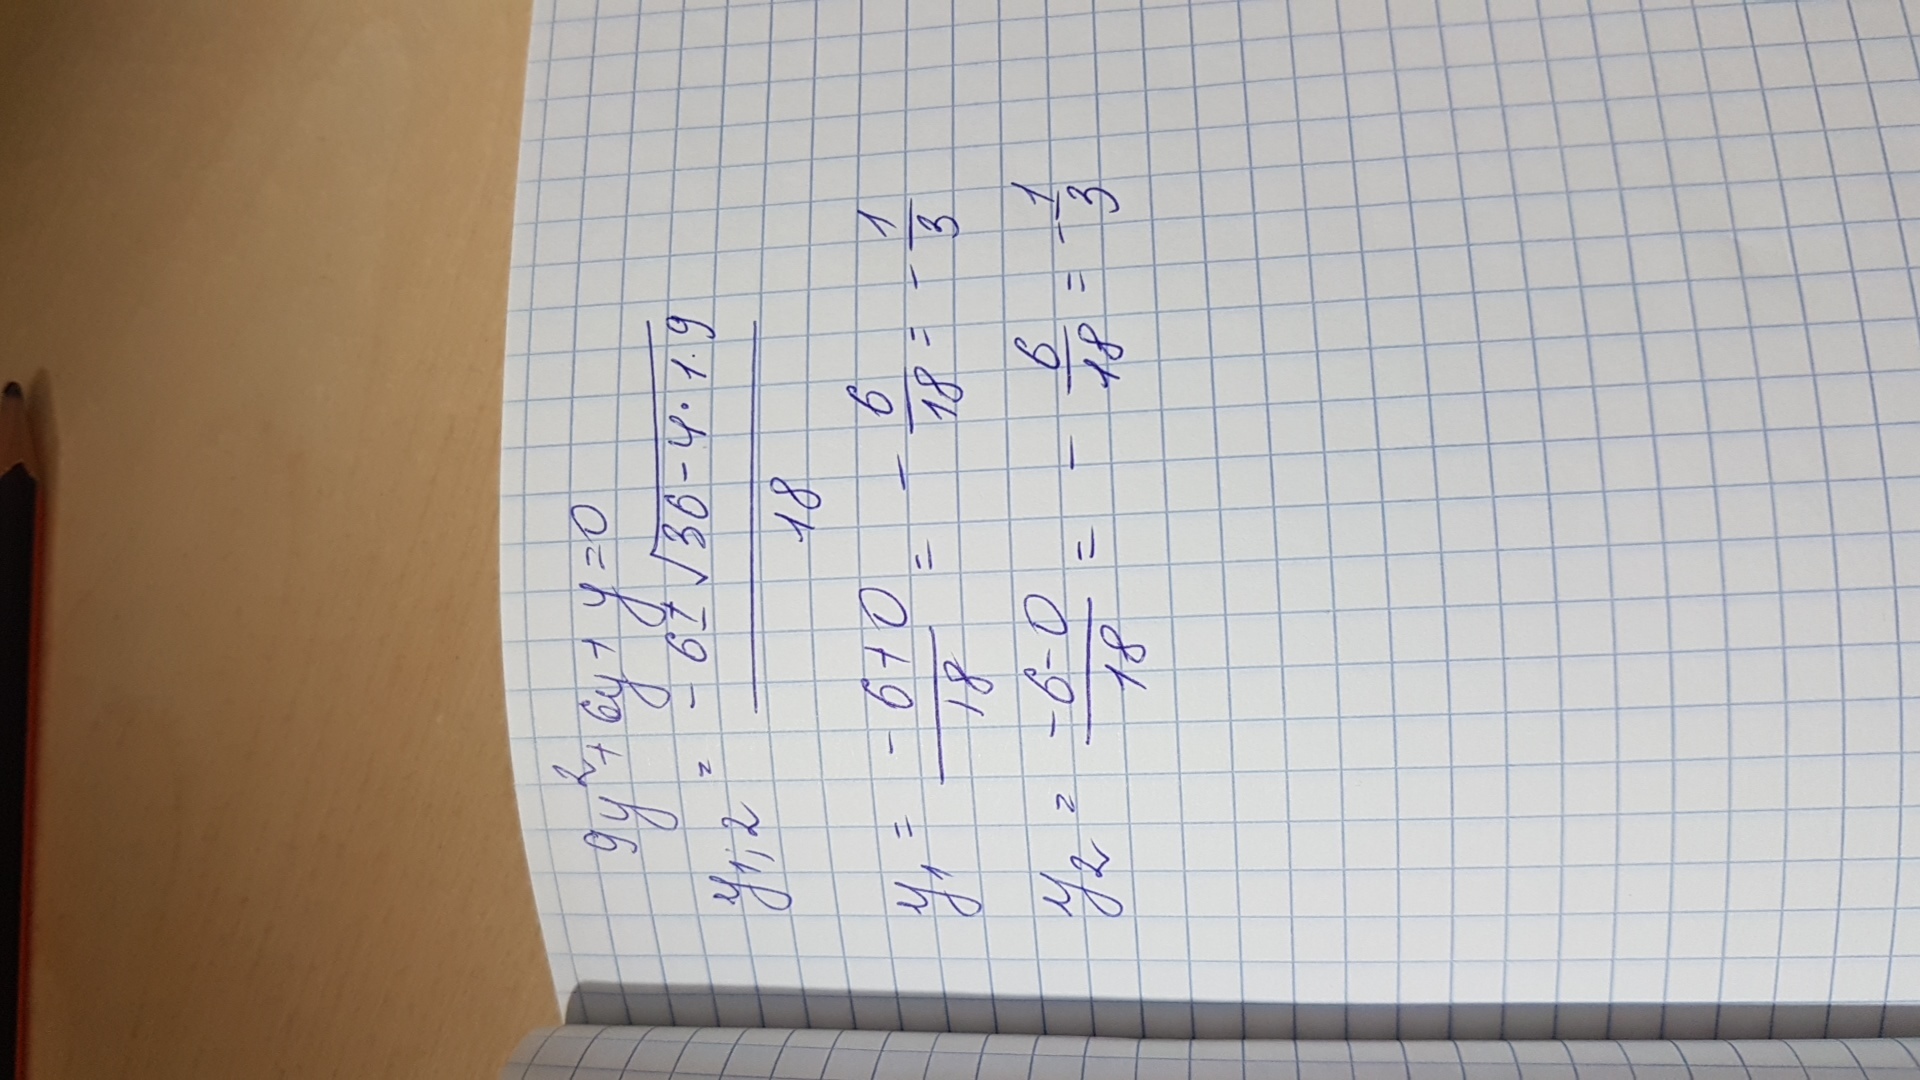 9y² + 6y + y = 0
y₁,₂ = - 6 ± √36 - 4 · 1 · 9 / 18
y₁ = - 6 + 0 / 18 = - 6/18 = - 1/3
y₂ = - 6 - 0 / 18 = - 6/18 = - 1/3